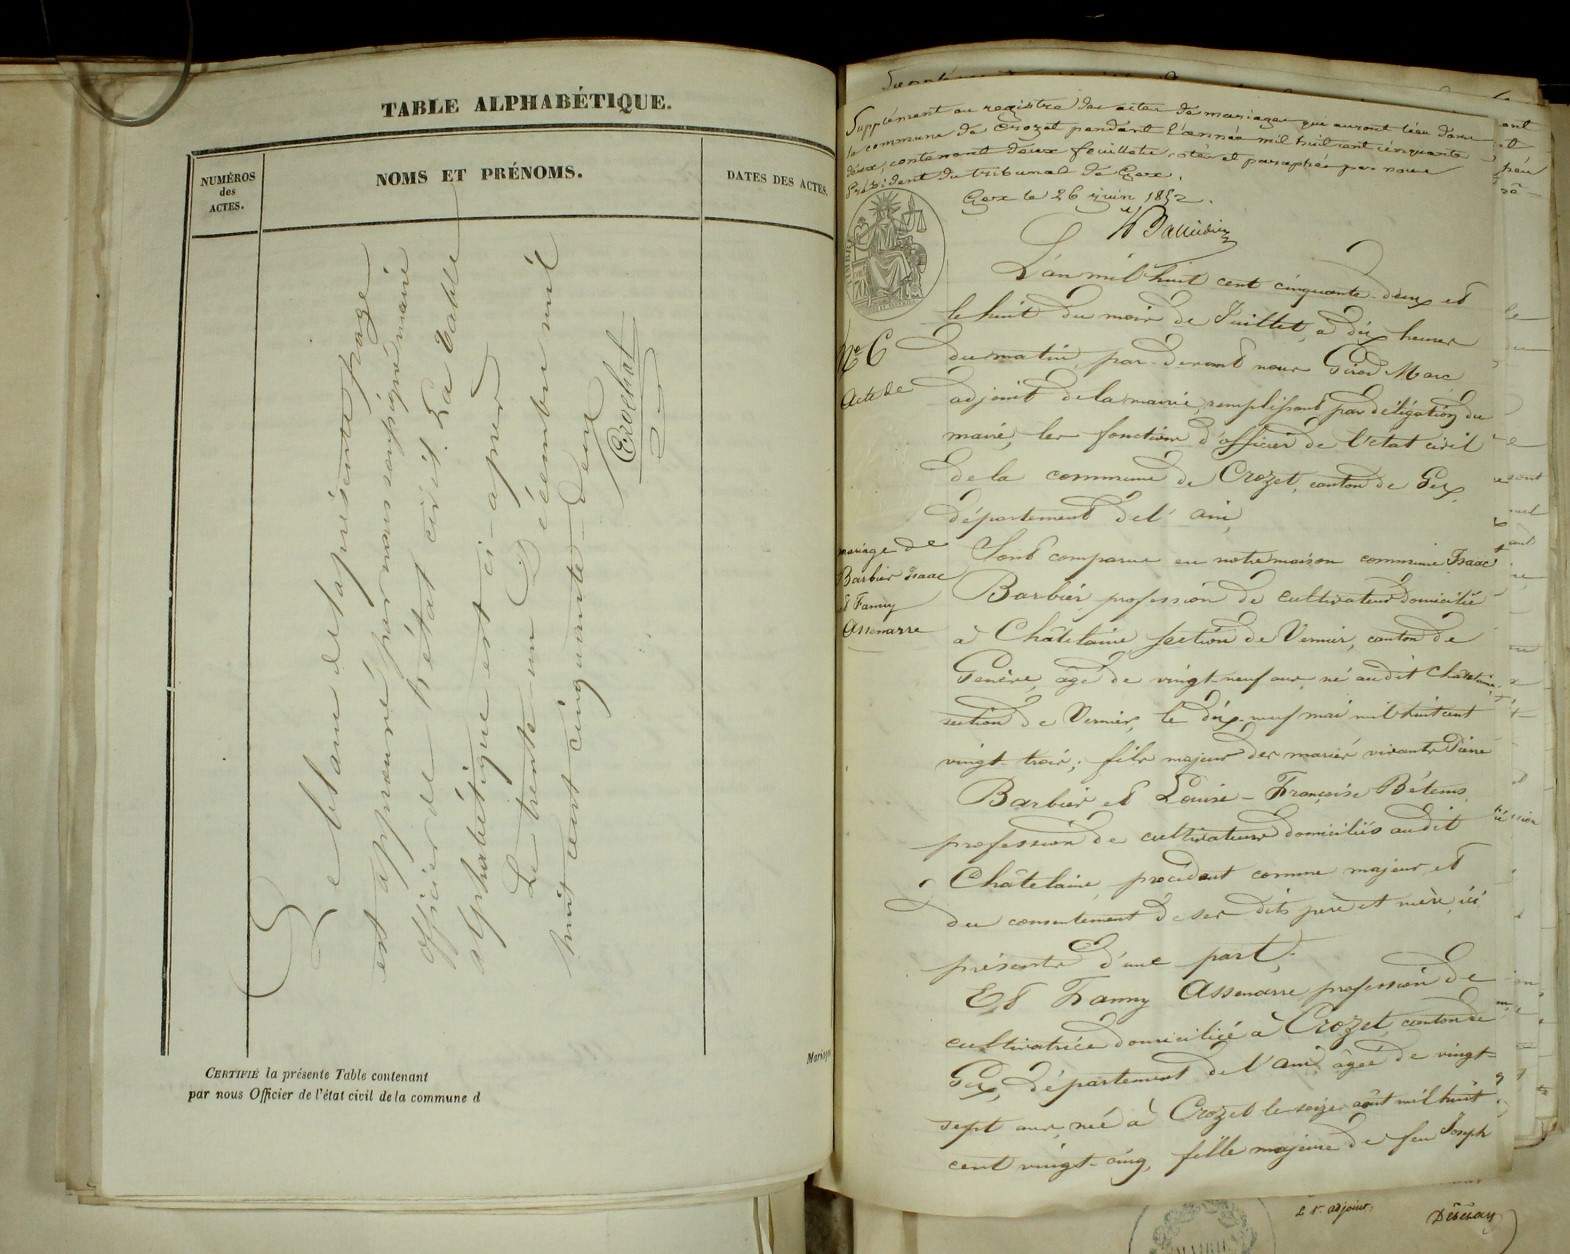 TABLE ALPHABÉTIQUE.
NUMÉROS
des
ACTES.
NOMS ET PRÉNOMS.
DATES DES ACTES.
Le blanc de la présente page
est approuvé par nous soussigné maire
officier de l'état civil. La table
alphabétique est ci-après
Le trente-un Décembre mil
huit cent cinquante-deux
Crochat
CERTIFIÉ la présente Table contenant
par nous Officier de l'état civil de la commune d
Mariages
Supplément au registre des actes de mariages qui auront lieu dans
la commune de Crozet pendant l'année mil huit cent cinquante
deux, contenant deux feuillets cotés et paraphés par nous
Président du tribunal de Gex.
Gex le 26 juin 1852.
L'an mil huit cent cinquante-deux et
le huit du mois de Juillet, à dix heures
No 6
du matin, par-devant nous Girod Marc
Acte de
adjoint de la mairie, remplissant par délégation du
maire, les fonctions d'officier de l'état civil
de la commune de Crozet, canton de Gex,
département de l'ain,
mariage de
Barbier Isaac
& Fanny
Assenarre
Sont comparus en notre maison commune Isaac
Barbier profession de cultivateur domicilié
à Châtelaine section de Vernier, canton de
Genève, âgé de vingt-neuf ans, né audit Châtelaine,
section de Vernier, le dix-neuf mai mil huit cent
vingt trois; fils majeur des mariés vivants Pierre
Barbier et Louise-Françoise Bétems
profession de cultivateurs domiciliés audit
Châtelaine, procédant comme majeur, et
du consentement de ses dits père et mère, ici
présents d'une part.
Et Fanny Assenarre profession de
cultivatrice domiciliée à Crozet, canton de
Gex, département de l'ain, âgée de vingt-
sept ans, née à Crozet le seize août mil huit
cent vingt-cinq, fille majeure de feu Joseph
adjoint,
MAIRIE